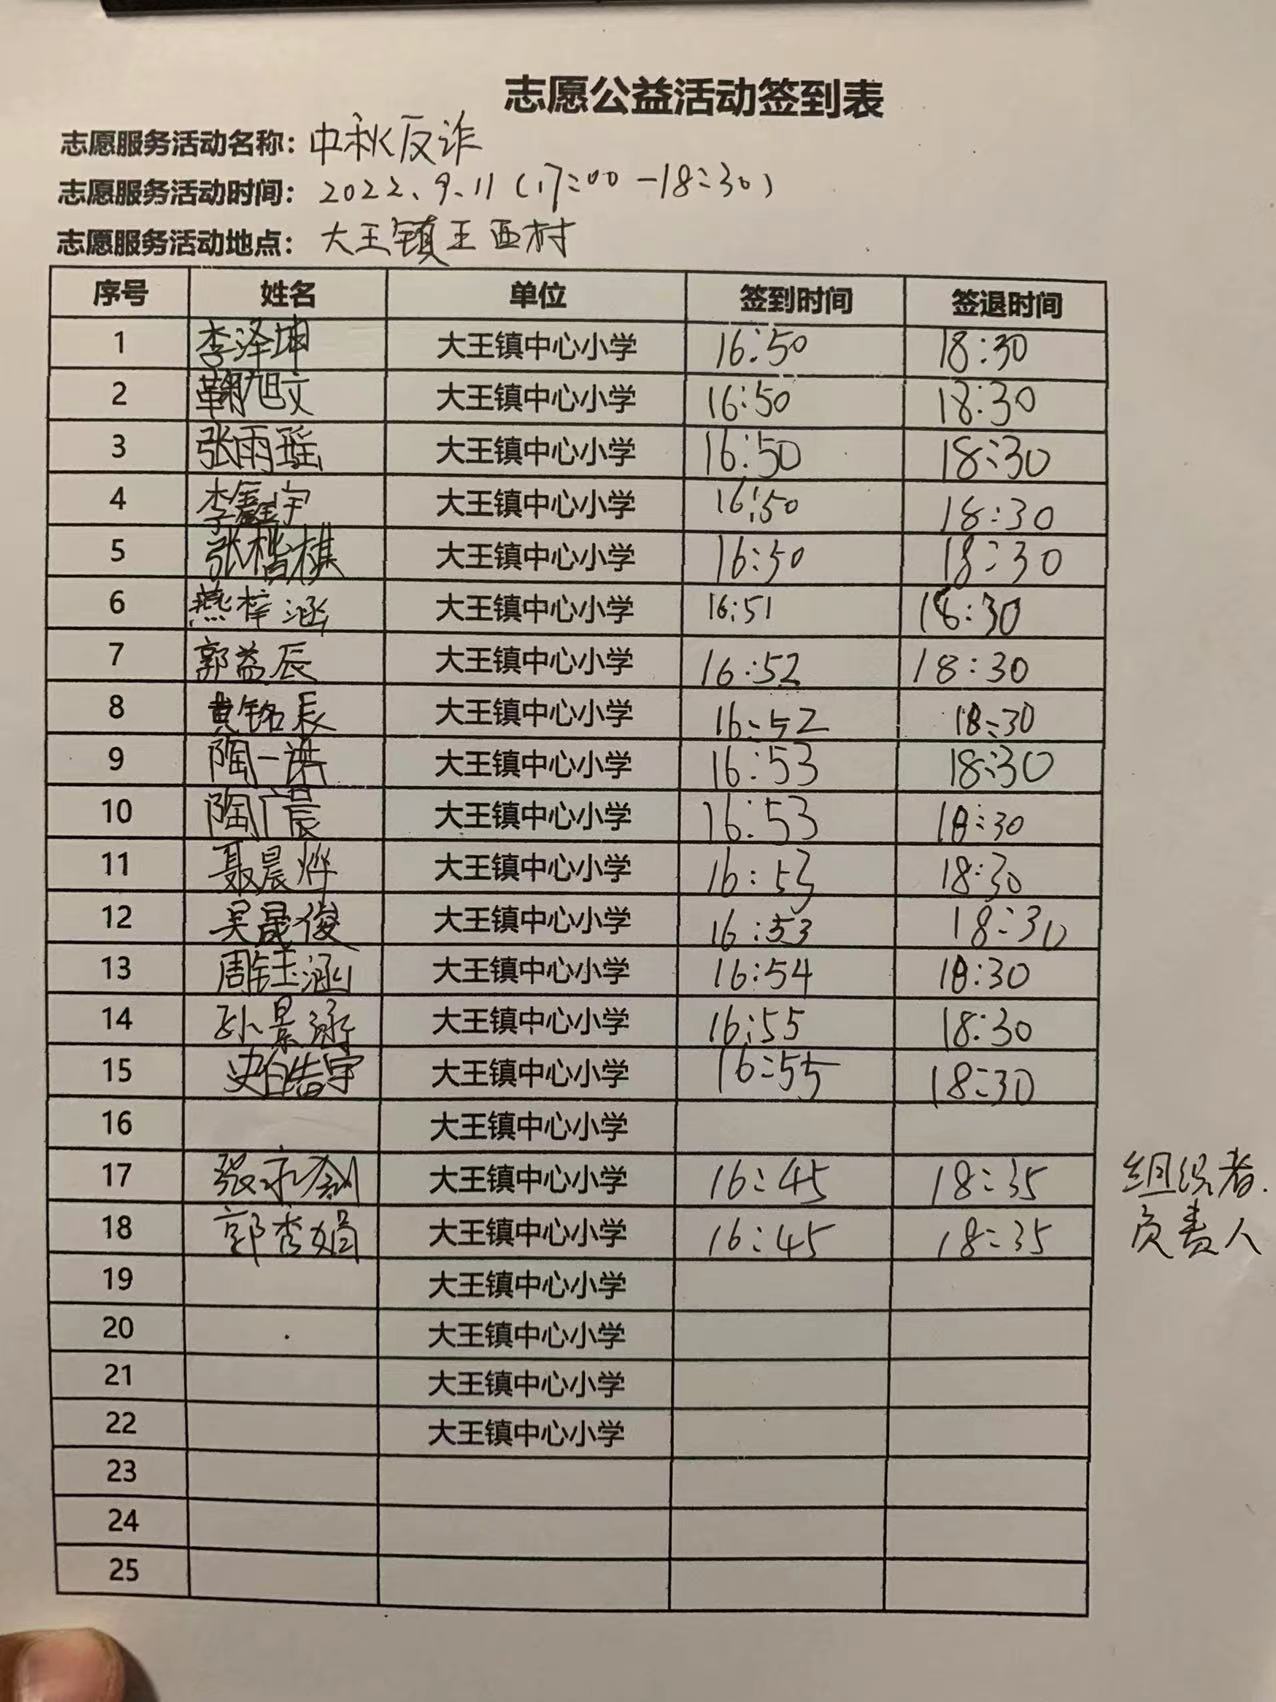 志愿公益活动签到表
志愿服务活动名称: 中秋反诈
志愿服务活动时间: 2022.9.11(17:00-18:30)
志愿服务活动地点: 大王镇王西村
序号 姓名 单位 签到时间 签退时间
1 李泽坤 大王镇中心小学 16:50 18:30
2 鞠旭文 大王镇中心小学 16:50 18:30
3 张雨瑶 大王镇中心小学 16:50 18:30
4 李鑫宇 大王镇中心小学 16:50 18:30
5 张楷棋 大王镇中心小学 16:50 18:30
6 燕梓涵 大王镇中心小学 16:51 18:30
7 郭益辰 大王镇中心小学 16:52 18:30
8 黄铭辰 大王镇中心小学 16:52 18:30
9 陶一诺 大王镇中心小学 16:53 18:30
10 陶广晨 大王镇中心小学 16:53 18:30
11 聂晨烨 大王镇中心小学 16:53 18:30
12 吴晟俊 大王镇中心小学 16:53 18:30
13 周钰涵 大王镇中心小学 16:54 18:30
14 孙景涵 大王镇中心小学 16:55 18:30
15 史皓宇 大王镇中心小学 16:55 18:30
16 大王镇中心小学
17 张永剑 大王镇中心小学 16:45 18:35 组织者.
18 郭秀娟 大王镇中心小学 16:45 18:35 负责人
19 大王镇中心小学
20 大王镇中心小学
21 大王镇中心小学
22 大王镇中心小学
23
24
25